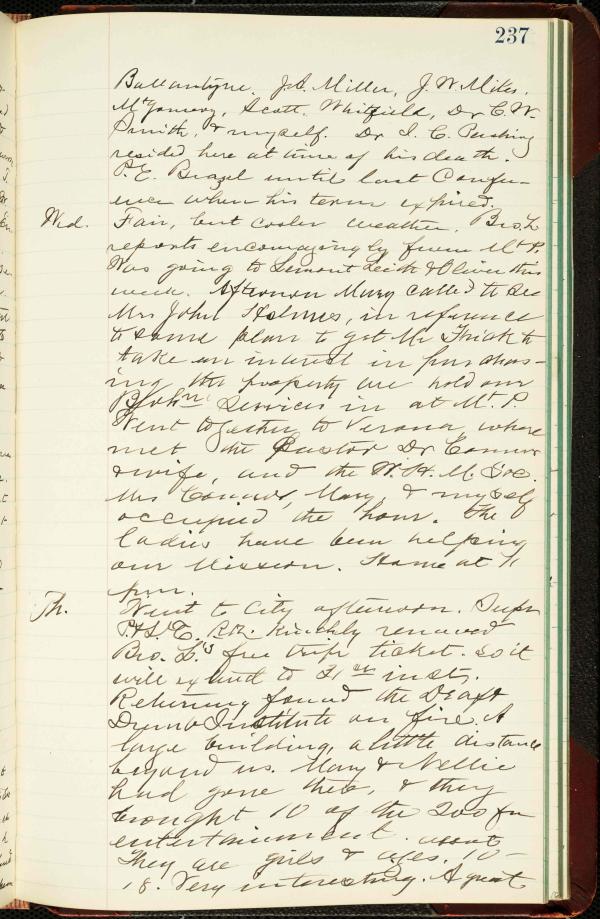 237
Ballantyne, J.A. Miller, J.W. Miles,
Mtgomery, Scott, Whitfield, Dr C.W.
Smith, & myself. Dr I. C. Pershing
resided here at time of his death.
P.E. until last Confer-
ence when his term expired.
Wed. Fair, but cooler weather. Bro. L
reports encouragingly from Mt P.
Was going to Lemont Leith & Oliver this
week. Afternoon Mary called to see
Mrs John Holmes, in reference
to some plan to get Mr Frick to
take an interest in purchas-
ing the property we hold our
Bohn Services in at Mt P.
Went together to Verona, where
met the Pastor Dr Connor
& wife, and the W.H.M. Soc.
Mrs Connor, Mary & myself
occupied the hour. The
ladies have been helping
our Mission. Home at 11
p.m.
Th. Went to City afternoon. Supt
P.& L.E. R.R. kindly renewed
Bro. L's free trip ticket. So it
will extend to 31st inst.
Returning found the Deaf &
Dumb Institute on fire. A
large building, a little distance
beyond us. Mary & Nellie
had gone there, & they
brought 10 of the 200 for
entertainment. about
They are girls & ages. 10-
18. Very interesting. A great